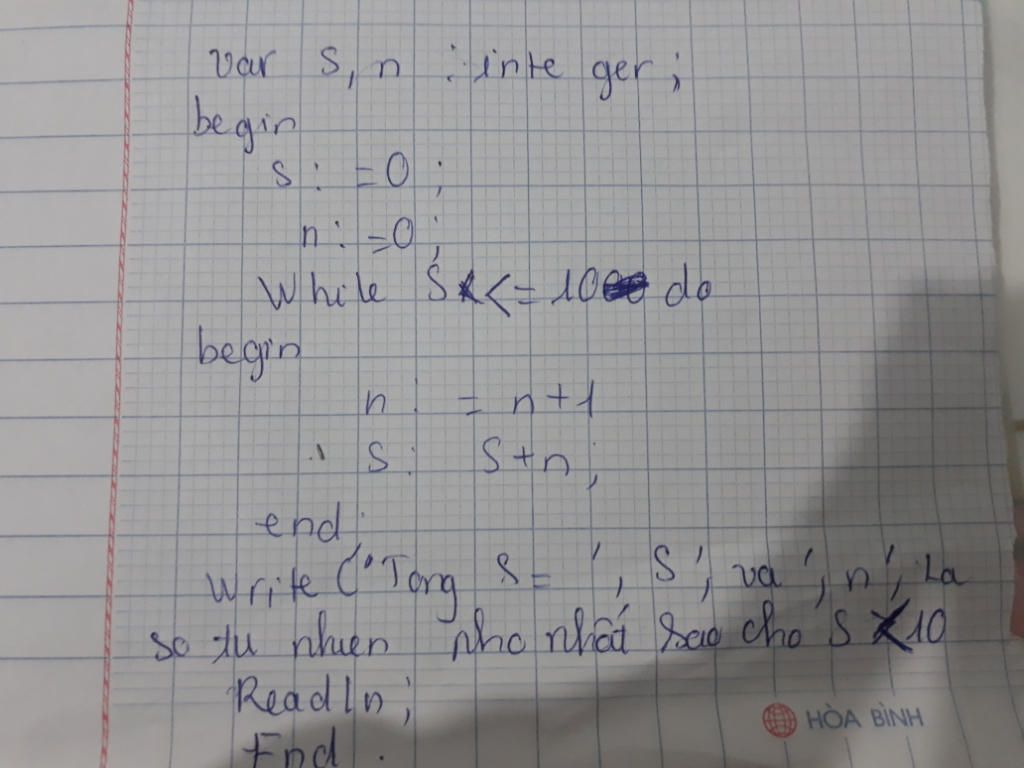 var S, n : inte ger;
begin
S: =0;
n: =0;
While S <= 10 do
begin
n : = n+1
S: S+n;
end;
Write ('Tong S= ', S', va', n', La
so tu nhien nho nhất sao cho S <10
Readln;
End.
HÒA BÌNH